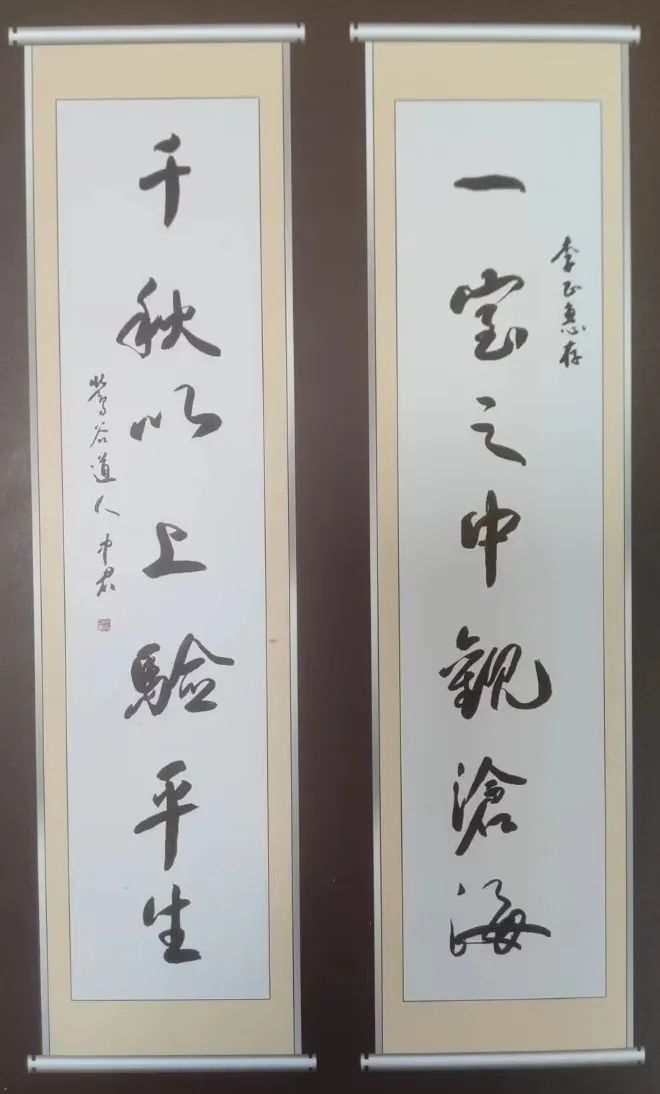 一室之中觀滄海
李正惠存
千秋以上驗平生
鶯谷道人中君